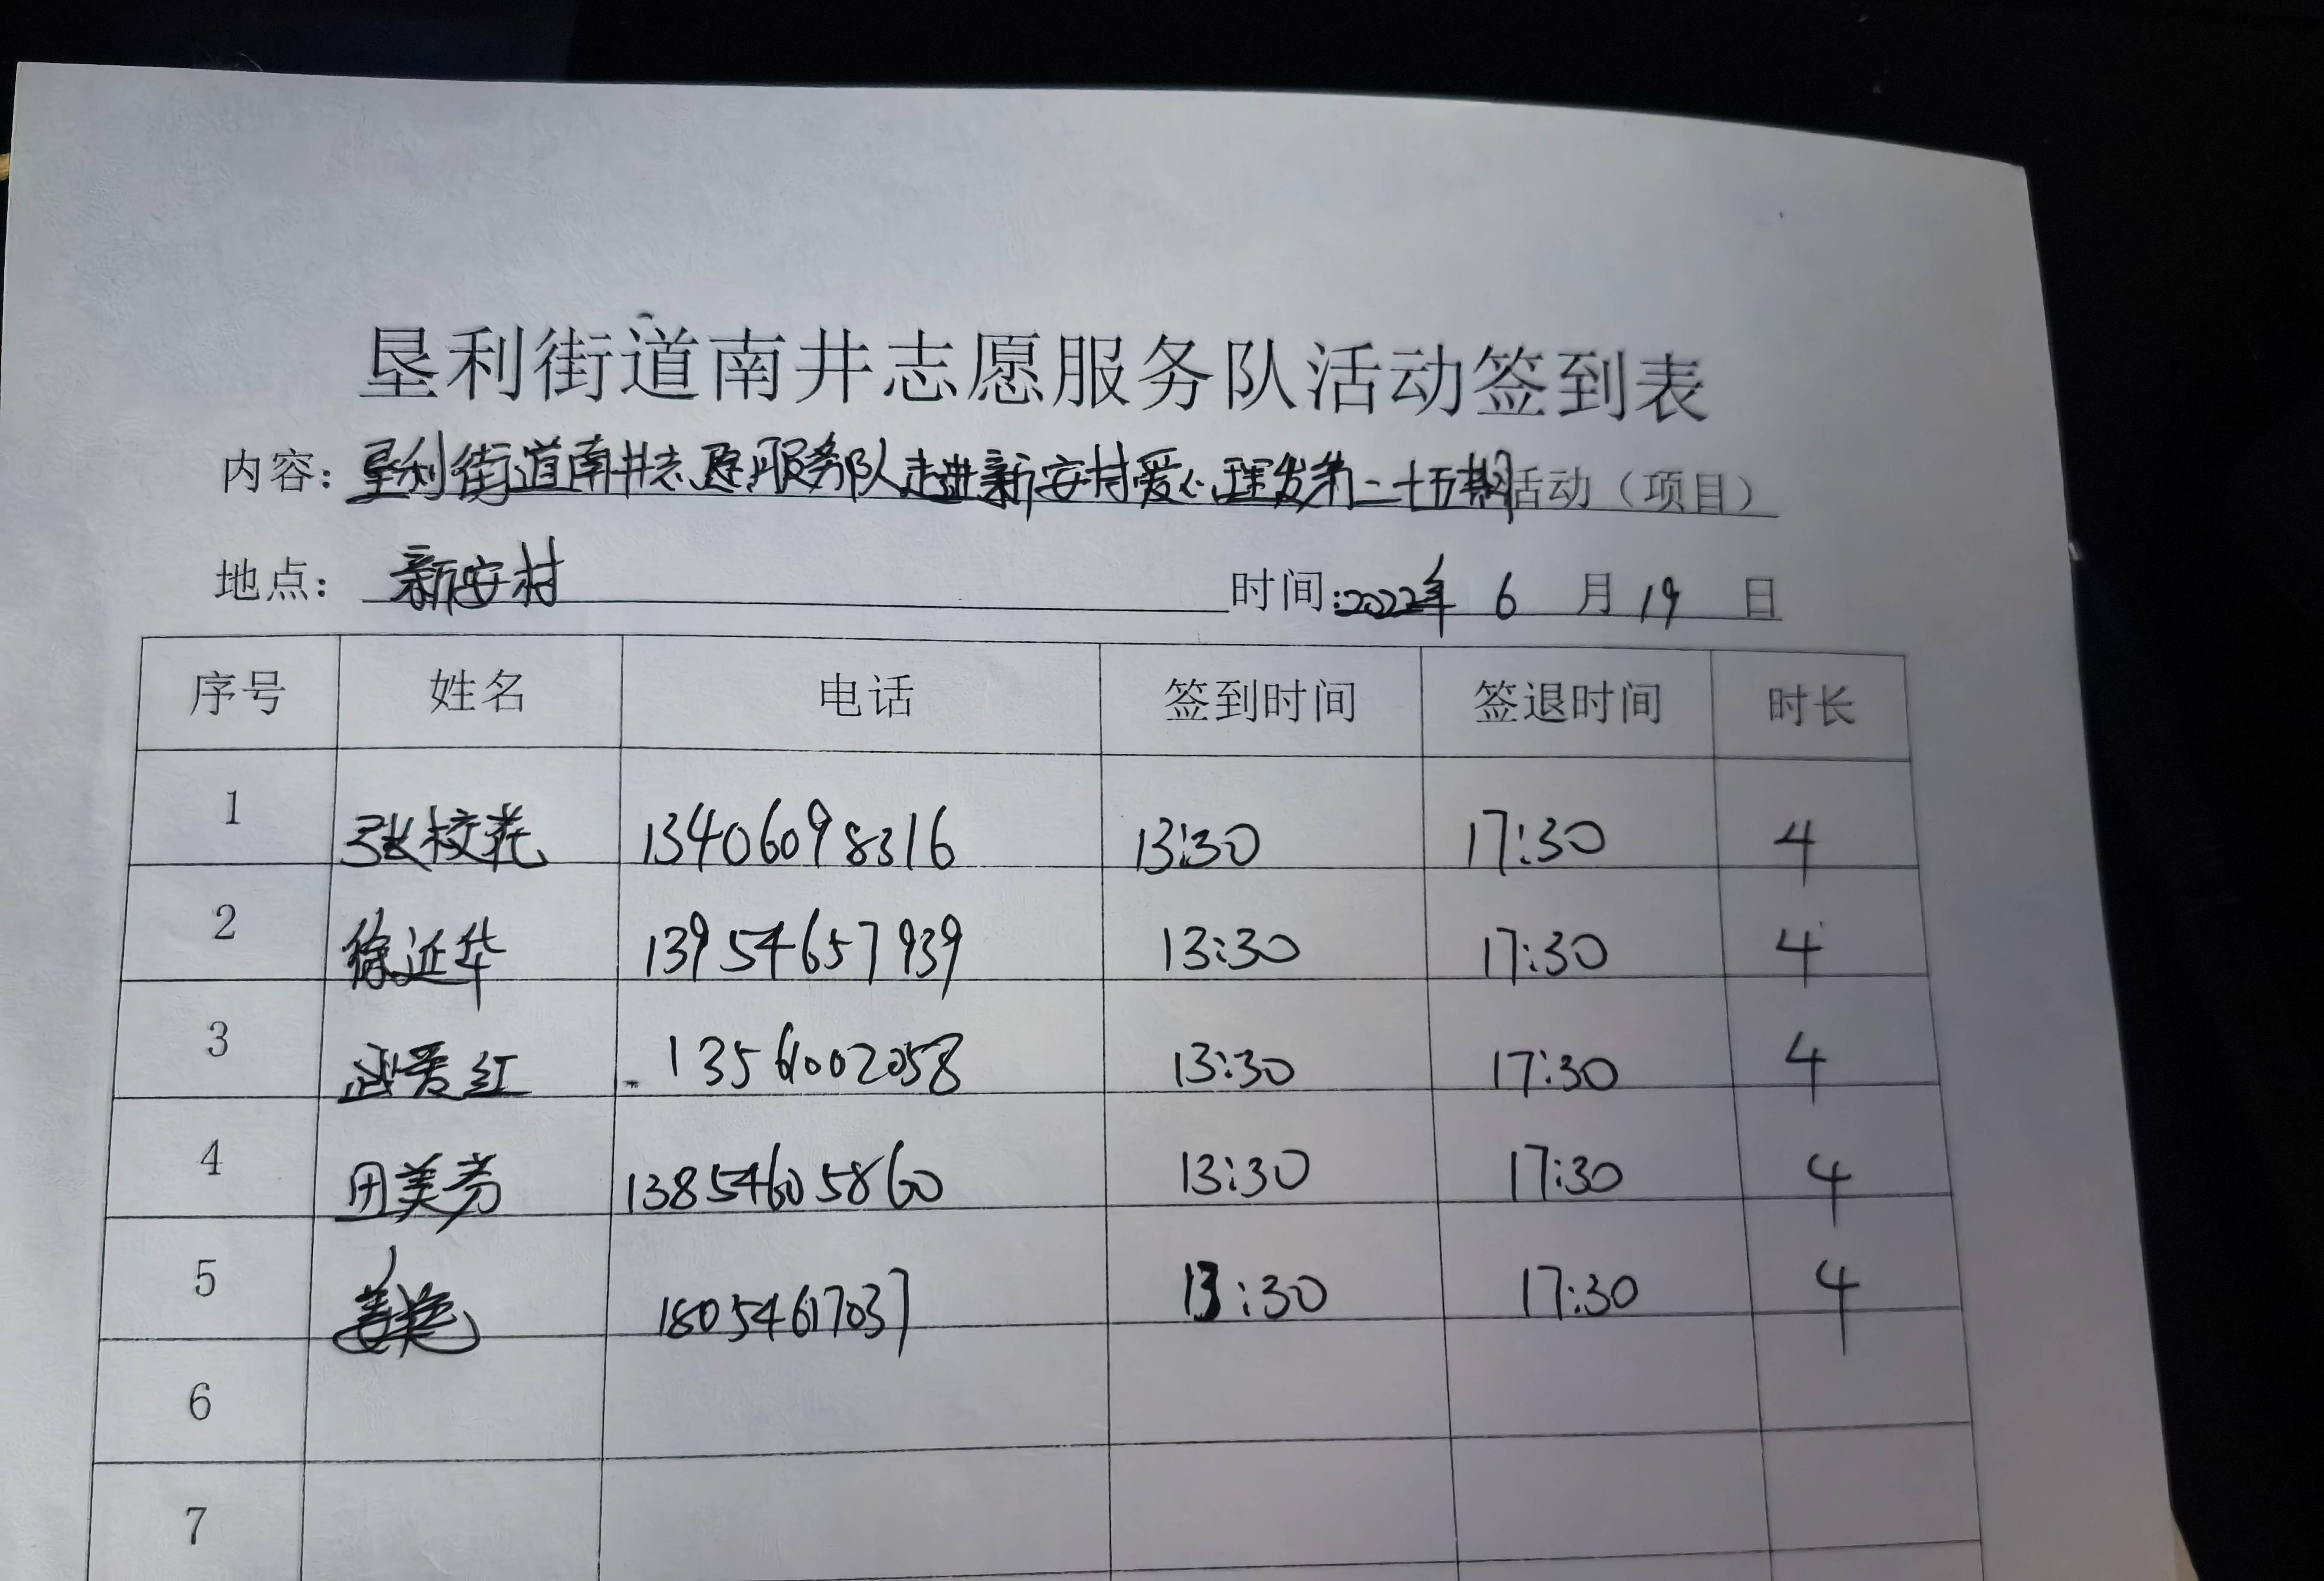 垦利街道南井志愿服务队活动签到表
内容：垦利街道南井志愿服务队走进新安村爱心理发第二十五期活动（项目）
地点：新安村 时间：2022年 6 月 19 日
序号 姓名 电话 签到时间 签退时间 时长
1 张校花 13406098316 13:30 17:30 4
2 徐延华 13954657939 13:30 17:30 4
3 武爱红 13561002058 13:30 17:30 4
4 田美芳 13854605860 13:30 17:30 4
5 18054617037 13:30 17:30 4
6
7